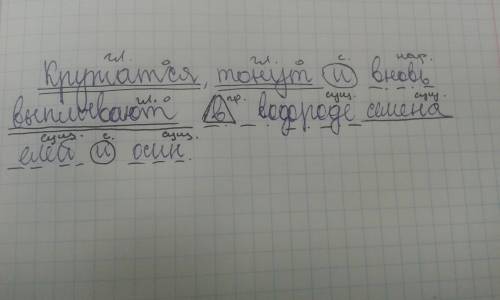 гл. гл. с. нар.
Кружатся, тонут и вновь
гл. пр. сущ. сущ.
выплывают в водороде семена
сущ. с. сущ.
елей и осин.